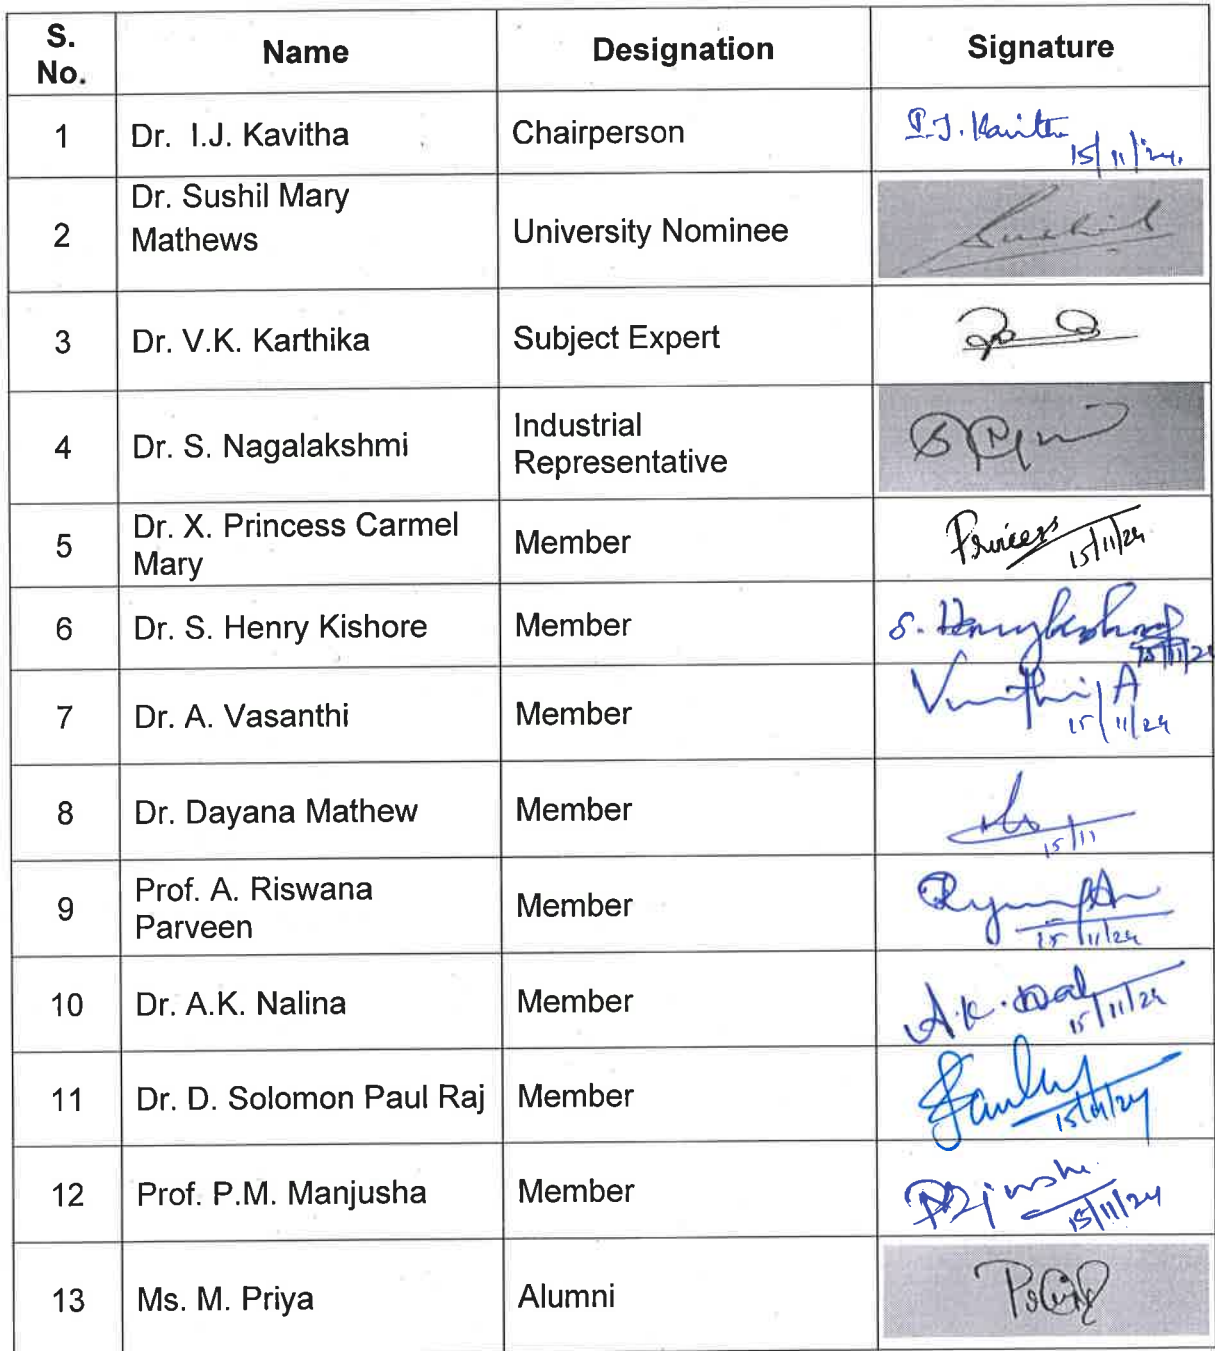 S. No. Name Designation Signature
1 Dr. I.J. Kavitha Chairperson I.J. Kavitha 15/11/24.
2 Dr. Sushil Mary Mathews University Nominee Sushil
3 Dr. V.K. Karthika Subject Expert
4 Dr. S. Nagalakshmi Industrial Representative
5 Dr. X. Princess Carmel Mary Member Princess 15/11/24
6 Dr. S. Henry Kishore Member S. Henry Kishore 15/11/24
7 Dr. A. Vasanthi Member Vasanthi A 15/11/24
8 Dr. Dayana Mathew Member 15/11
9 Prof. A. Riswana Parveen Member 15/11/24
10 Dr. A.K. Nalina Member A.K. 15/11/24
11 Dr. D. Solomon Paul Raj Member 15/11/24
12 Prof. P.M. Manjusha Member 15/11/24
13 Ms. M. Priya Alumni